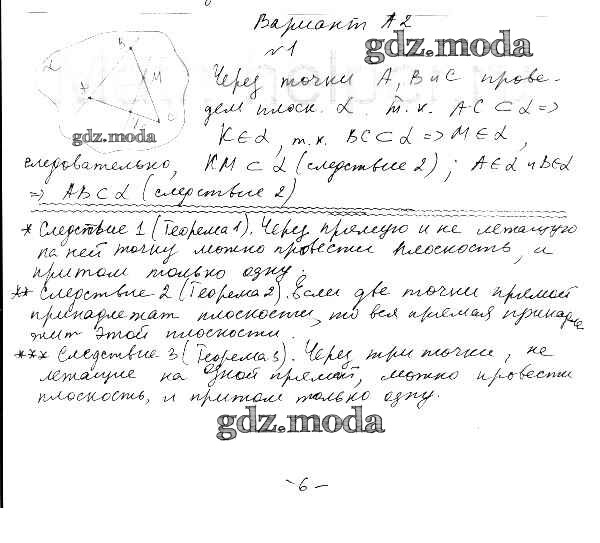 Вариант А2
№1
gdz.moda
Через точки А, В и С прове-
дем плоск. α. т.к. АС ⊂ α =>
К ∈ α, т.к. ВС ⊂ α => М ∈ α,
следовательно, КМ ⊂ α (следствие 2); А ∈ α и В ∈ α
=> АВ ⊂ α (следствие 2)
α
В
А
М
К
С
gdz.moda
* Следствие 1 (Теорема 1). Через прямую и не лежащую
на ней точку можно провести плоскость, и
притом только одну.
** Следствие 2 (Теорема 2). Если две точки прямой
принадлежат плоскости, то вся прямая принадле
жит этой плоскости.
*** Следствие 3 (Теорема 3). Через три точки, не
лежащие на одной прямой, можно провести
плоскость, и притом только одну.
gdz.moda
-6-